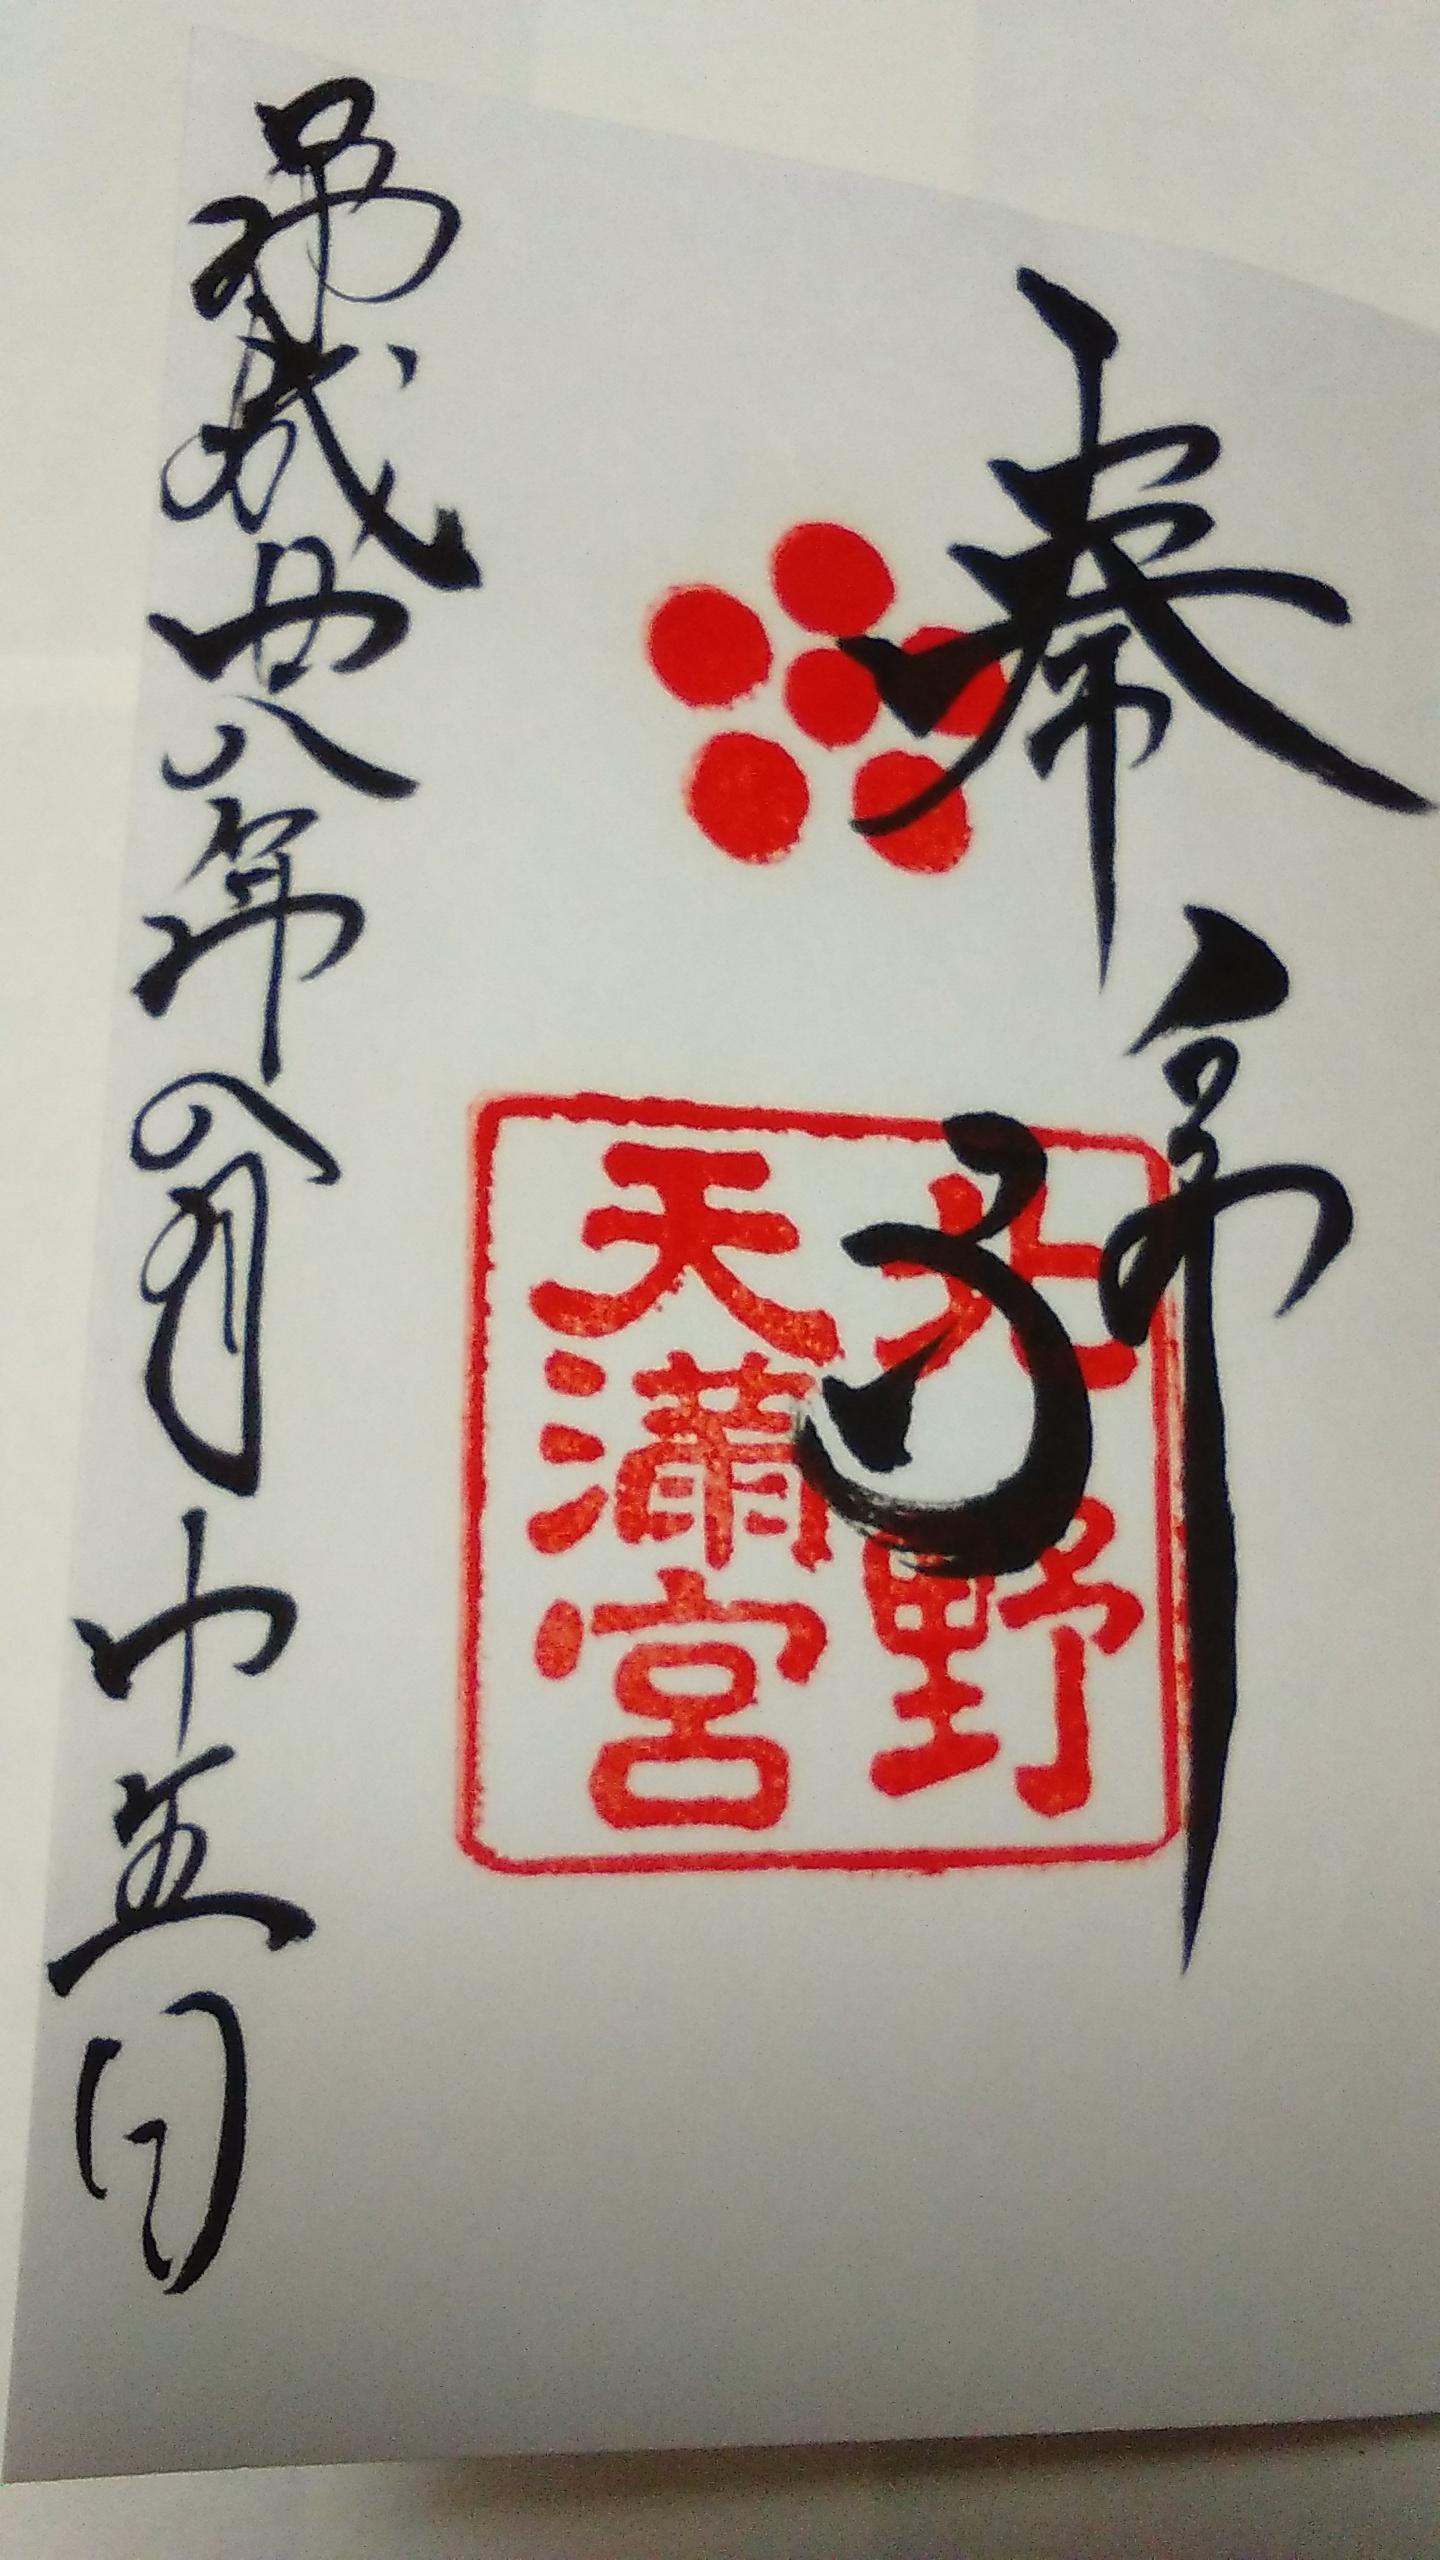 奉拝
北野
天満宮
平成廿八年八月十五日